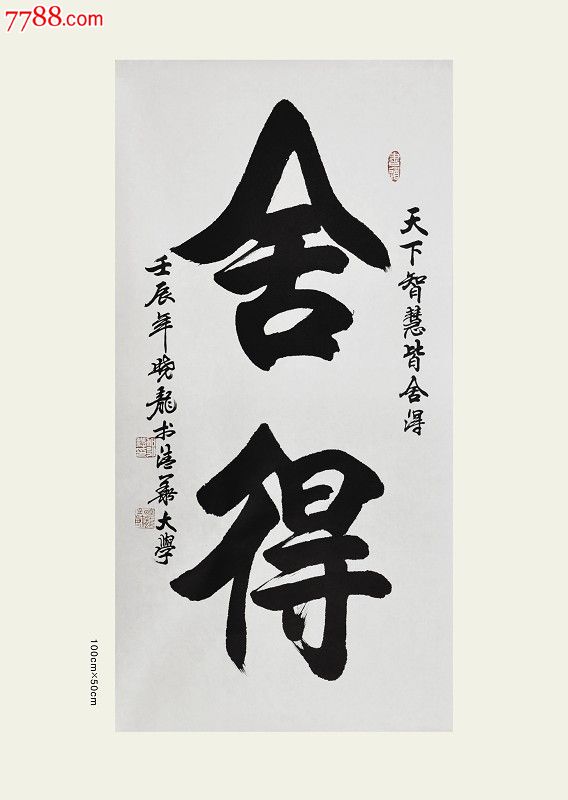 7788.com
舍得
天下智慧皆舍得
壬辰年晚龍书清華大學
100cm×50cm